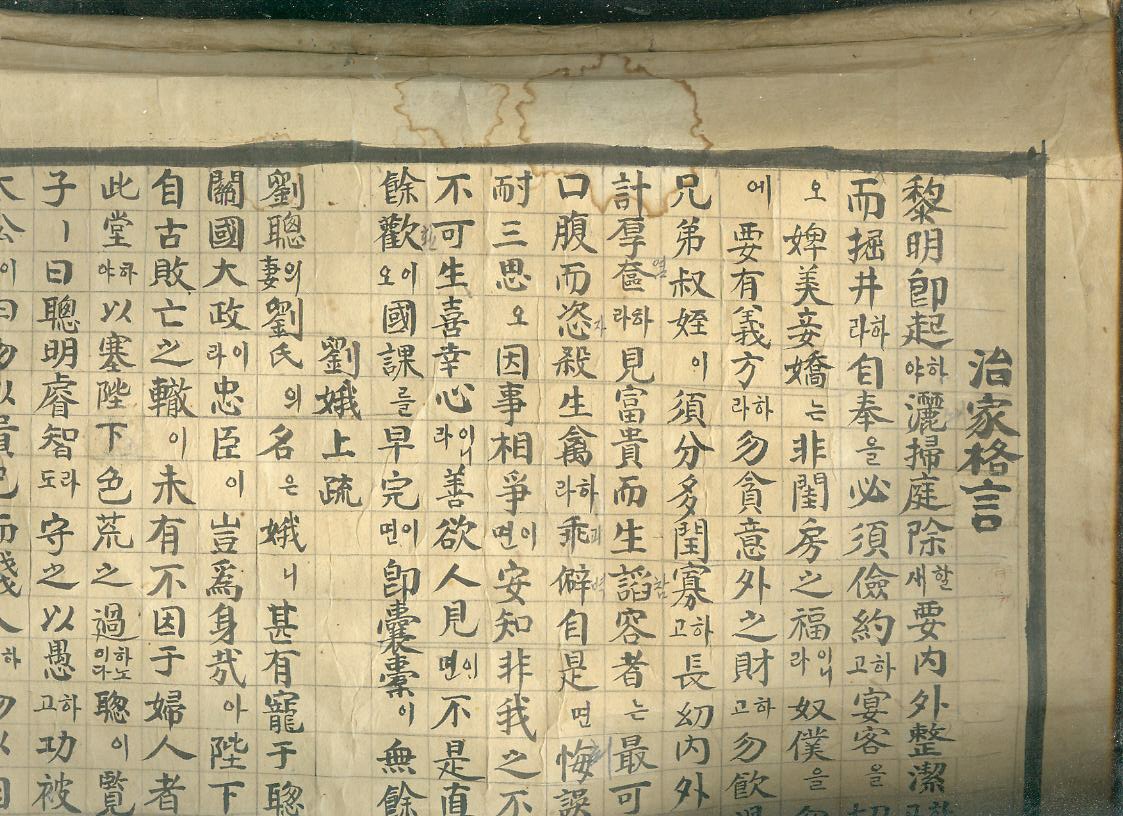 治家格言
黎明卽起하야灑掃庭除할새要內外整潔
而掘井하라自奉을必須儉約하고宴客을
오婢美妾嬌는非閨房之福이니라奴僕을
에要有義方하라勿貪意外之財하고勿飮
兄弟叔姪이須分多閏寡하고長幼內外
計厚奩하라見富貴而生謟容者는最可
口腹而恣殺生禽하라乖僻自是면悔誤
耐三思오因事相爭이면安知非我之不
不可生喜幸心이니라善欲人見이면不是直
餘歡이오國課를早完이면卽囊橐이無餘
劉娥上疏
劉聰의妻劉氏의名은娥니甚有寵于聰
關國大政이라忠臣이豈爲身哉아陛下
自古敗亡之轍이未有不因于婦人者
此堂하야以塞陛下色荒之過하노이다聰이覽
子ㅣ曰聰明睿智도라守之以愚하고功被